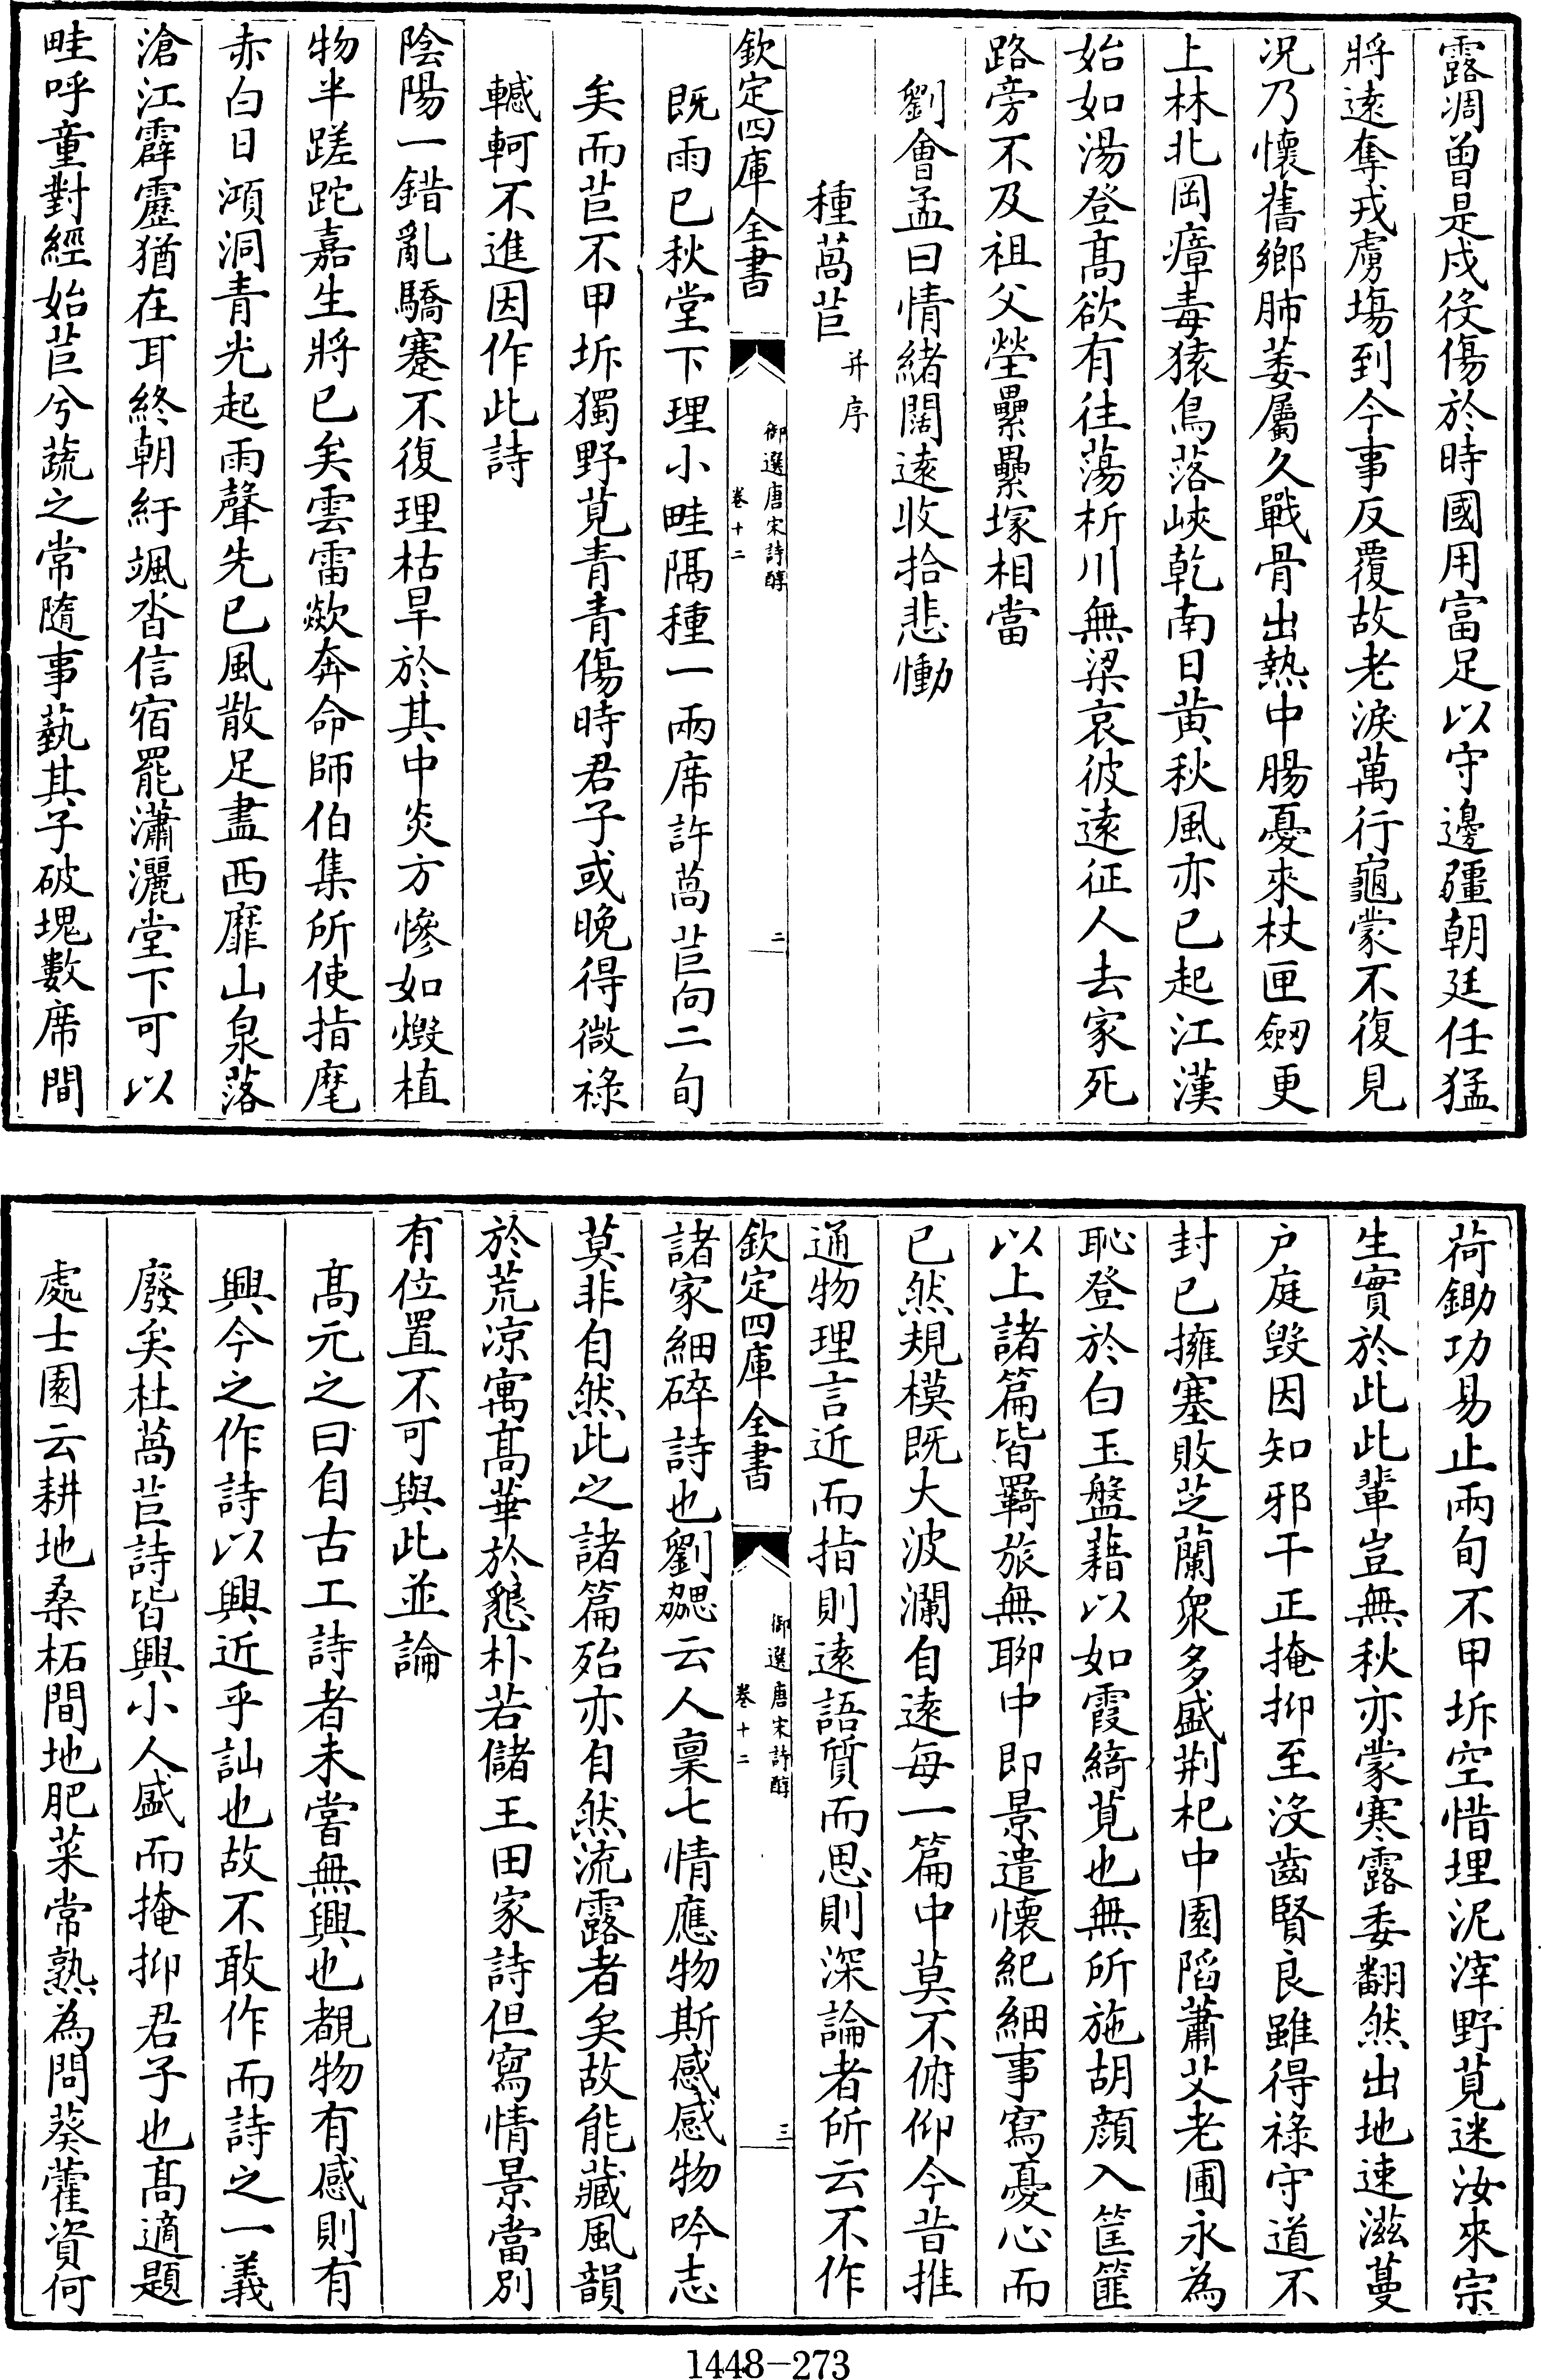 露凋曽是戍役傷於時國用富足以守邊疆朝廷任猛
將遠奪戎虜塲到今事反覆故老淚萬行龜蒙不復見
况乃懷舊鄉肺萎屬久戰骨出熱中腸憂來杖匣劒更
上林北岡瘴毒猿鳥落峽乾南日黄秋風亦已起江漢
始如湯登髙欲有往蕩析川無梁哀彼遠征人去家死
路旁不及祖父塋纍纍塚相當
劉會孟曰情緒闊遠收拾悲慟
種萵苣并序
欽定四庫全書
御選唐宋詩醇
卷十二
二
既雨已秋堂下理小畦隔種一兩席許萵苣向二旬
矣而苣不甲坼獨野莧青青傷時君子或晚得微祿
轗軻不進因作此詩
陰陽一錯亂驕蹇不復理枯旱於其中炎方慘如燬植
物半蹉跎嘉生將已矣雲雷欻奔命師伯集所使指麾
赤白日澒洞青光起雨聲先已風散足盡西靡山泉落
滄江霹靂猶在耳終朝紆颯沓信宿罷瀟灑堂下可以
畦呼童對經始苣兮蔬之常隨事蓺其子破塊數席間
荷鋤功易止兩旬不甲坼空惜埋泥滓野莧迷汝來宗
生實於此此輩豈無秋亦蒙寒露委翻然出地速滋蔓
户庭毁因知邪干正掩抑至没齒賢良雖得祿守道不
封已擁塞敗芝蘭衆多盛荆杞中園陷蕭艾老圃永為
恥登於白玉盤藉以如霞綺莧也無所施胡顔入筐篚
以上諸篇皆羇旅無聊中即景遣懷紀細事寫憂心而
已然規模既大波瀾自遠每一篇中莫不俯仰今昔推
通物理言近而指則遠語質而思則深論者所云不作
欽定四庫全書
御選唐宋詩醇
卷十二
三
諸家細碎詩也劉勰云人禀七情應物斯感感物吟志
莫非自然此之諸篇殆亦自然流露者矣故能藏風韻
於荒凉寓髙華於懇朴若儲王田家詩但寫情景當别
有位置不可與此並論
髙元之曰自古工詩者未甞無興也覩物有感則有
興今之作詩以興近乎訕也故不敢作而詩之一義
廢矣杜萵苣詩皆興小人盛而掩抑君子也髙適題
處士園云耕地桑柘間地肥菜常熟為問葵藿資何
1448-273